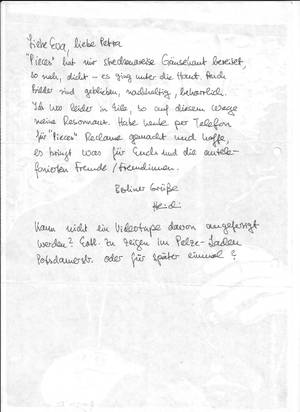 Liebe Eva, liebe Petra
"Pieces" hat mir streckenweise Gänsehaut bereitet,
so nah, dicht – es ging unter die Haut. Auch
Bilder sind geblieben, nachhaltig, beharrlich.
Ich war leider in Eile, so auf diesem Wege
meine Resonanz. Habe heute per Telefon
für "Pieces" Reclame gemacht und hoffe,
es bringt was für Euch und die antele-
fonierten Freunde/Freundinnen.
Berliner Grüße
Heidi
Kann nicht ein Videotape davon angefertigt
werden? Evtl. zu zeigen im Pelze-Laden
Potsdamerstr. oder für später einmal?